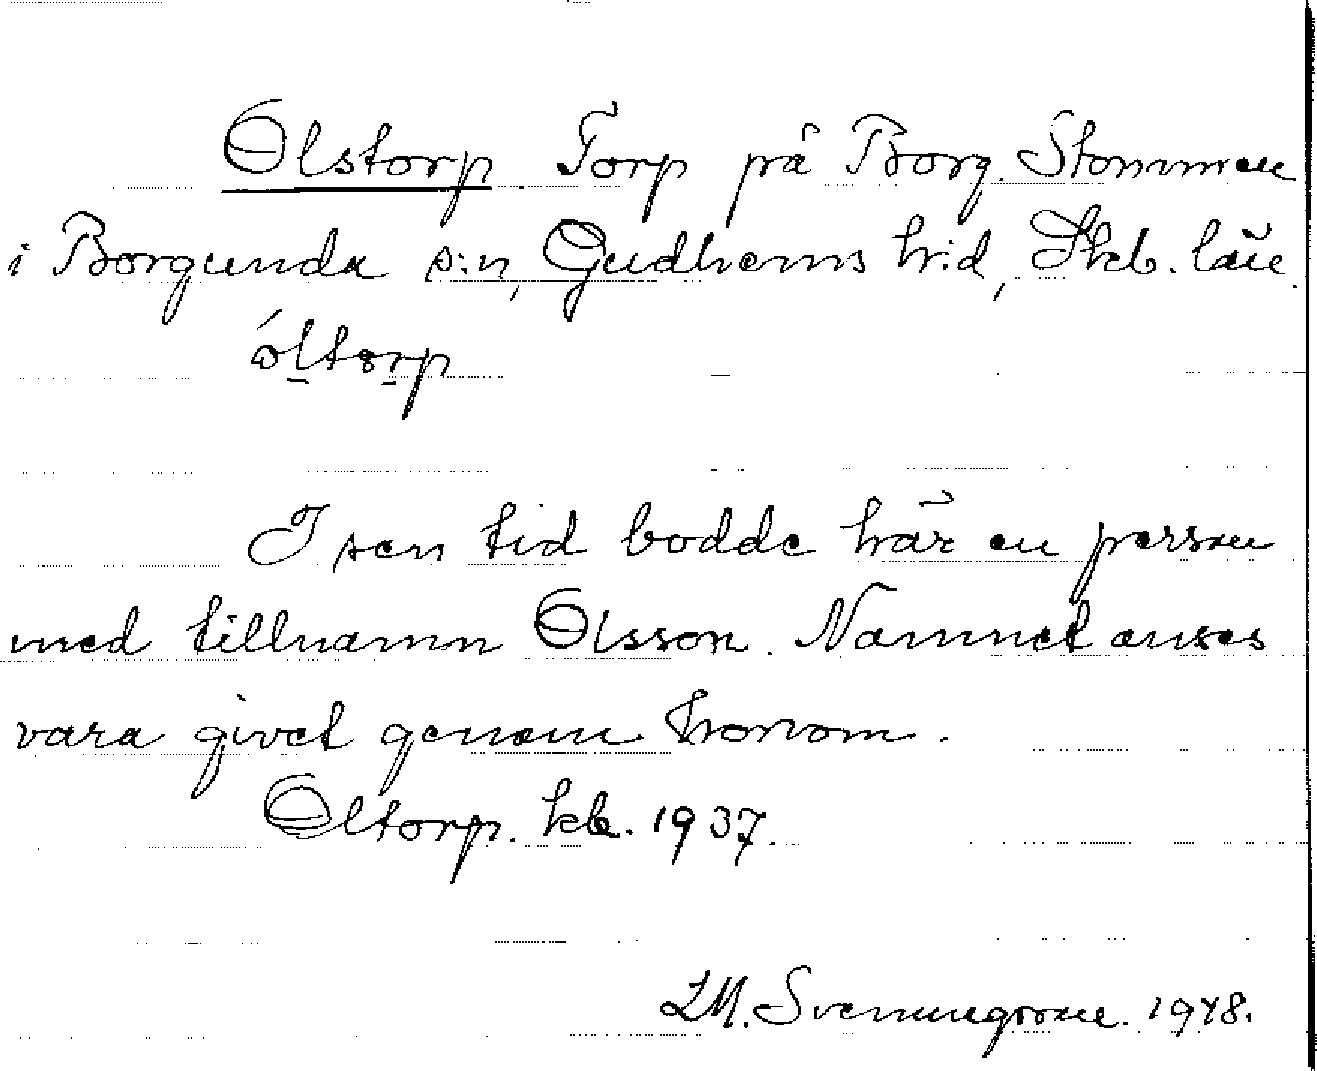 Olstorp Torp på Borg. Stommen
i Borgunda s:n, Gudhems h:d, Skb. län.
óltorp
I sen tid bodde här en person
med tillnamn Olsson. Namnet anses
vara givet genom honom.
Oltorp. kb. 1937.
Svenungsson. 1948.